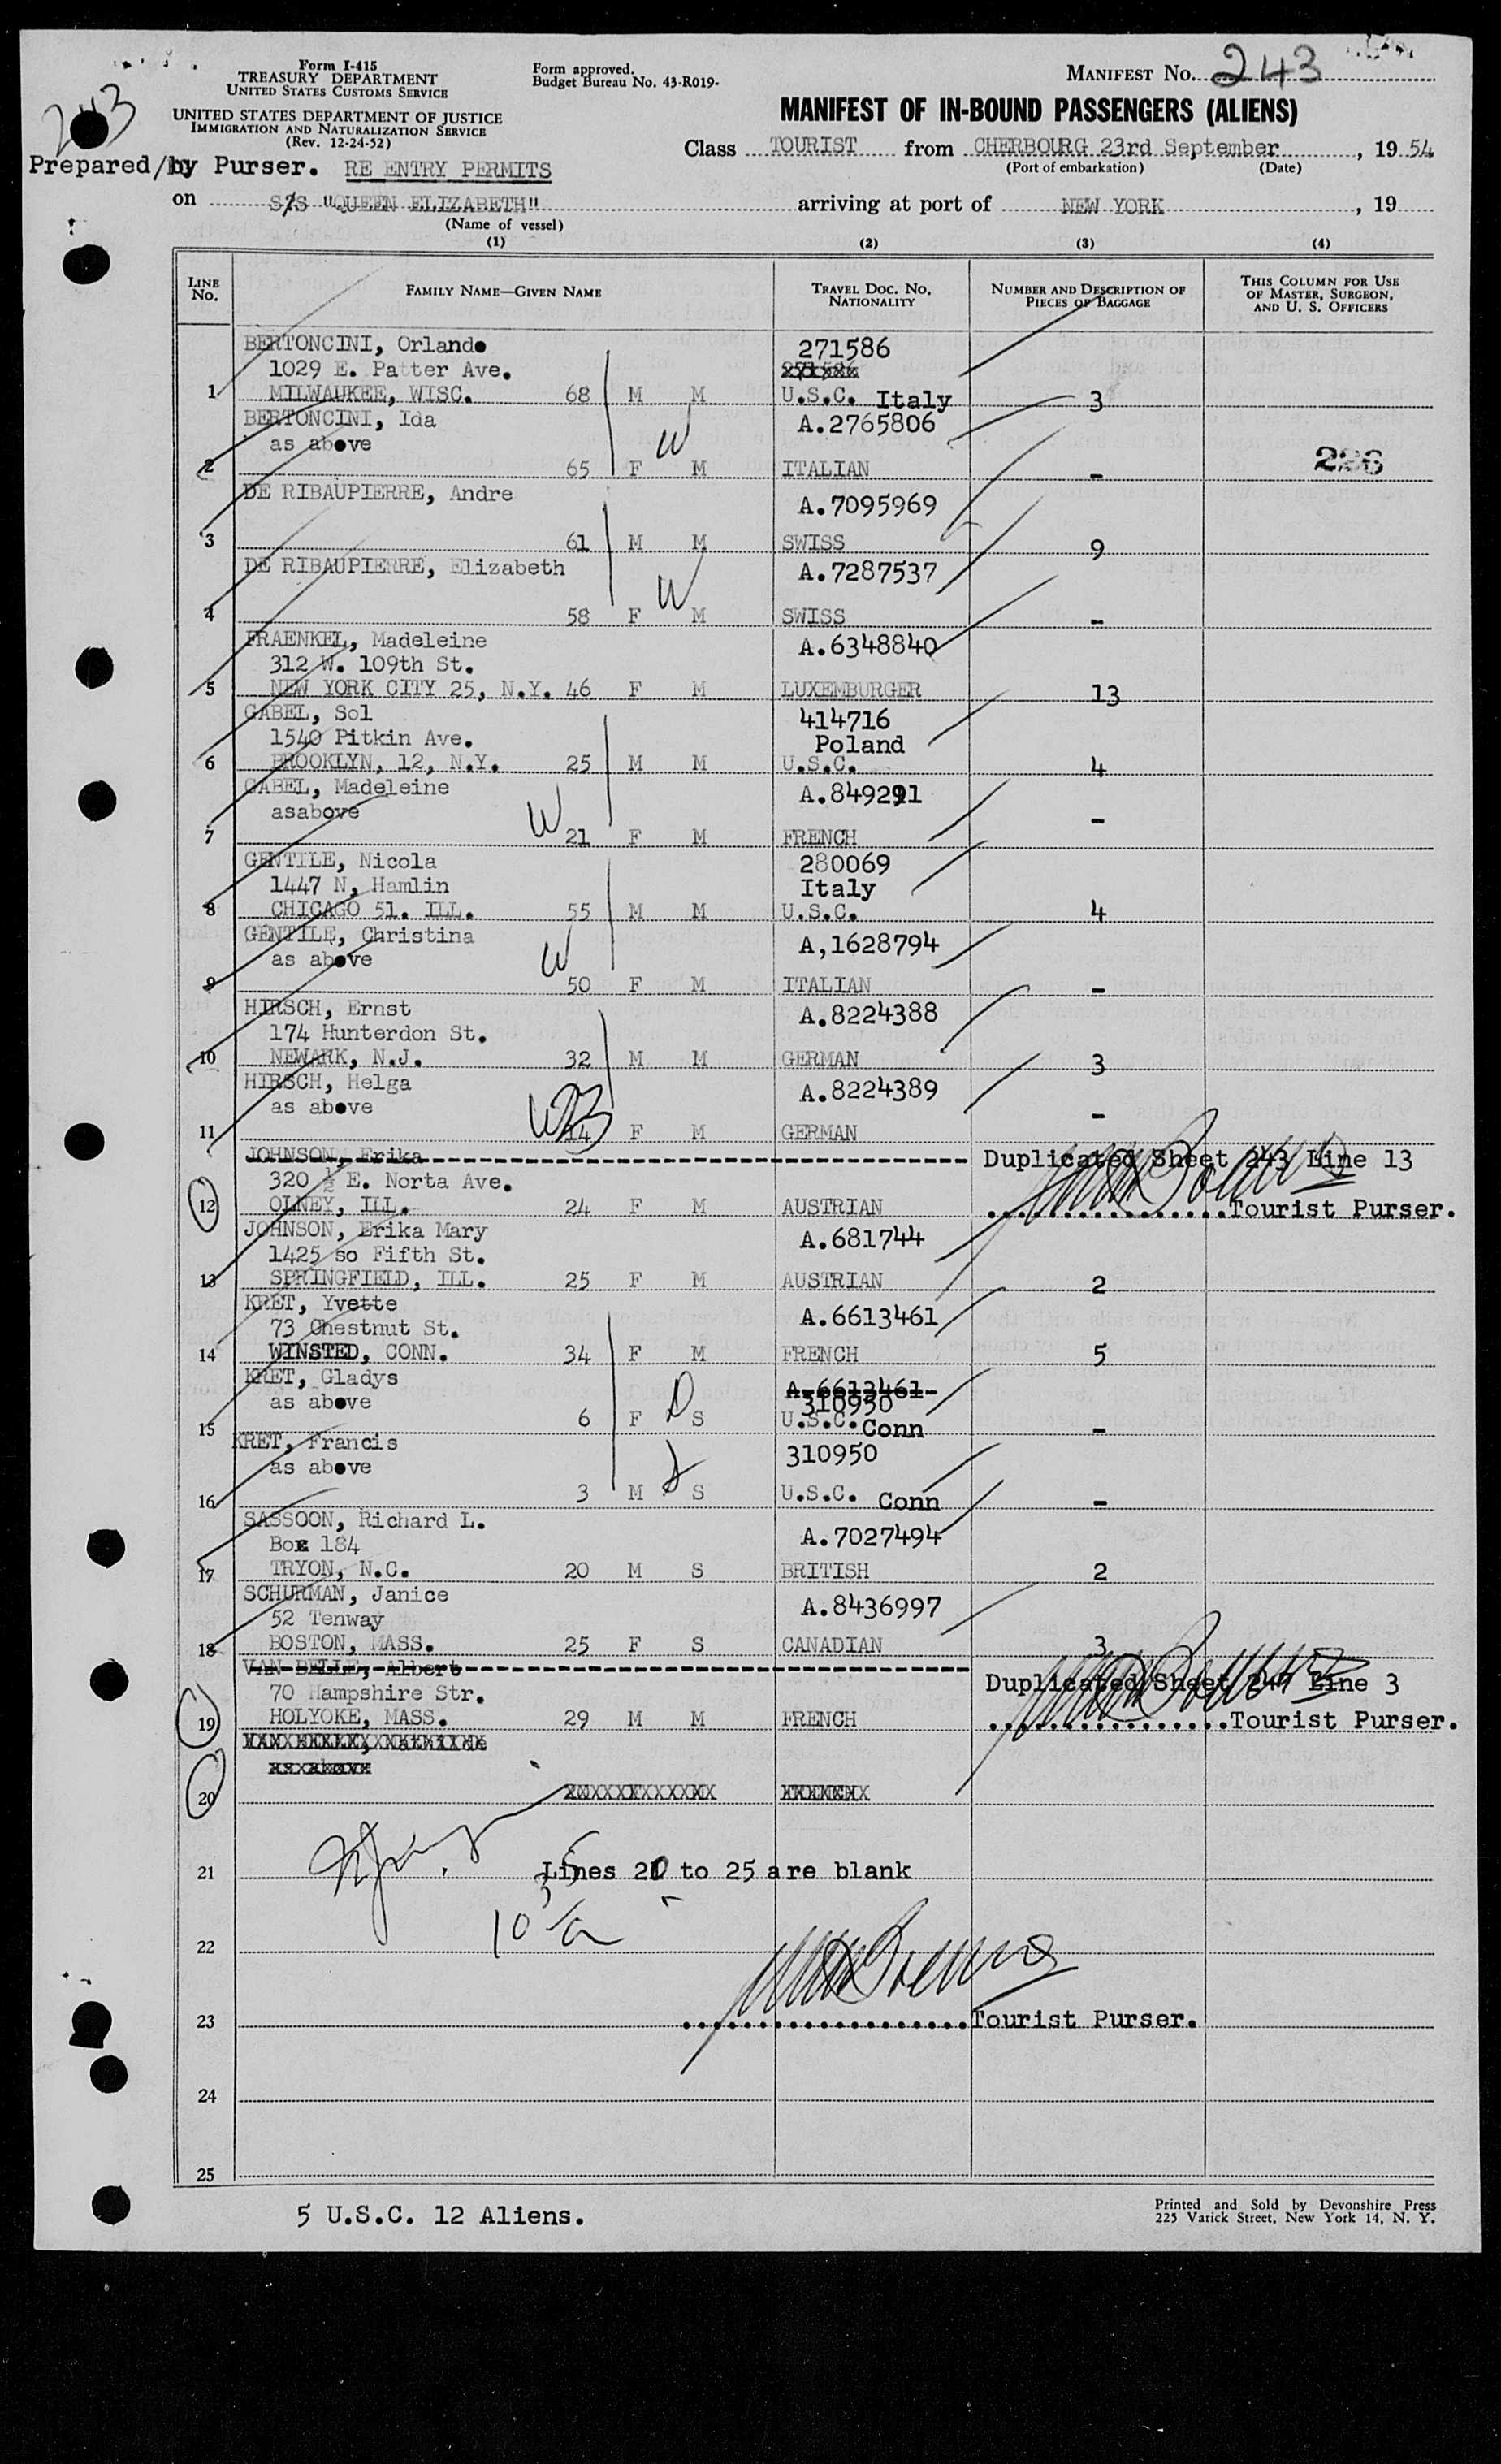 Form I-415
TREASURY DEPARTMENT
UNITED STATES CUSTOMS SERVICE
UNITED STATES DEPARTMENT OF JUSTICE
IMMIGRATION AND NATURALIZATION SERVICE
(Rev. 12-24-52)
Form approved.
Budget Bureau No. 43-R019-
MANIFEST No. 243
243
MANIFEST OF IN-BOUND PASSENGERS (ALIENS)
Class TOURIST from CHERBOURG 23rd September, 19 54
(Port of embarkation) (Date)
Prepared/by Purser. RE ENTRY PERMITS
on S/S "QUEEN ELIZABETH" arriving at port of NEW YORK, 19
(Name of vessel)
(1) (2) (3) (4)
LINE No. FAMILY NAME—GIVEN NAME TRAVEL DOC. NO. NATIONALITY NUMBER AND DESCRIPTION OF PIECES OF BAGGAGE THIS COLUMN FOR USE OF MASTER, SURGEON, AND U. S. OFFICERS
BERTONCINI, Orlando 271586
1029 E. Patter Ave.
1 MILWAUKEE, WISC. 68 M M U.S.C. Italy 3
BERTONCINI, Ida A.2765806
as above W
2 65 F M ITALIAN - 226
DE RIBAUPIERRE, Andre A.7095969
3 61 M M SWISS 9
DE RIBAUPIERRE, Elizabeth A.7287537
W
4 58 F M SWISS -
FRAENKEL, Madeleine A.6348840
312 W. 109th St.
5 NEW YORK CITY 25, N.Y. 46 F M LUXEMBURGER 13
GABEL, Sol 414716
1540 Pitkin Ave. Poland
6 BROOKLYN, 12, N.Y. 25 M M U.S.C. 4
GABEL, Madeleine A.849291
asabove W
7 21 F M FRENCH -
GENTILE, Nicola 280069
1447 N, Hamlin Italy
8 CHICAGO 51. ILL. 55 M M U.S.C. 4
GENTILE, Christina A,1628794
as above W
9 50 F M ITALIAN -
HIRSCH, Ernst A.8224388
174 Hunterdon St.
10 NEWARK, N.J. 32 M M GERMAN 3
HIRSCH, Helga A.8224389
as above W 23
11 F M GERMAN -
JOHNSON, Erika Duplicated Sheet 243 Line 13
320 ½ E. Norta Ave.
12 OLNEY, ILL. 24 F M AUSTRIAN Tourist Purser.
JOHNSON, Erika Mary A.681744
1425 so Fifth St.
13 SPRINGFIELD, ILL. 25 F M AUSTRIAN 2
KRET, Yvette A.6613461
73 Chestnut St.
14 WINSTED, CONN. 34 F M FRENCH 5
KRET, Gladys A.6613461
as above D 310950
15 6 F S U.S.C. Conn -
KRET, Francis 310950
as above
16 3 M S U.S.C. Conn -
SASSOON, Richard L. A.7027494
Box 184
17 TRYON, N.C. 20 M S BRITISH 2
SCHURMAN, Janice A.8436997
52 Tenway
18 BOSTON, MASS. 25 F S CANADIAN 3
VAN BELLE, Albert Duplicated Sheet 247 Line 3
70 Hampshire Str.
19 HOLYOKE, MASS. 29 M M FRENCH Tourist Purser.
20
21 Lines 20 to 25 are blank
22
23 Tourist Purser.
24
25
5 U.S.C. 12 Aliens.
Printed and Sold by Devonshire Press
225 Varick Street, New York 14, N. Y.